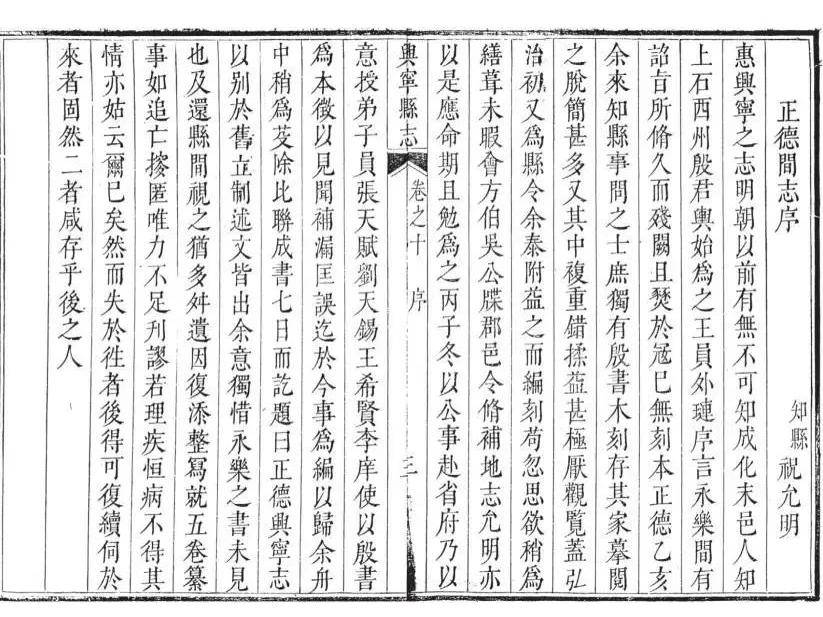 正德間志序
知縣祝允明
惠興寧之志明朝以前有無不可知成化末邑人知
上石西州殷君輿始為之王員外璉序言永樂間有
詔旨所脩久而殘闕且燹於冦巳無刻本正德乙亥
余來知縣事問之士庶獨有殷書木刻存其家摹閱
之脫簡甚多又其中複重錯揉葢甚極厭觀覧蓋弘
治初又為縣令余泰附益之而編刻苟忽思欲稍為
繕葺未暇會方伯吳公牒郡邑令脩補地志允明亦
以是應命期且勉為之丙子冬以公事赴省府乃以
興寧縣志
卷之十
序
三
意授弟子員張天賦劉天錫王希賢李庠使以殷書
為本徵以見聞補漏匡誤迄於今事為編以歸余舟
中稍為芟除比聯成書七日而訖題曰正德興寧志
以别於舊立制述文皆出余意獨惜永樂之書未見
也及還縣間視之猶多舛遺因復添整冩就五卷纂
事如追亡搜匿唯力不足刋謬若理疾恒病不得其
情亦姑云爾巳矣然而失於徃者後得可復續伺於
來者固然二者咸存乎後之人